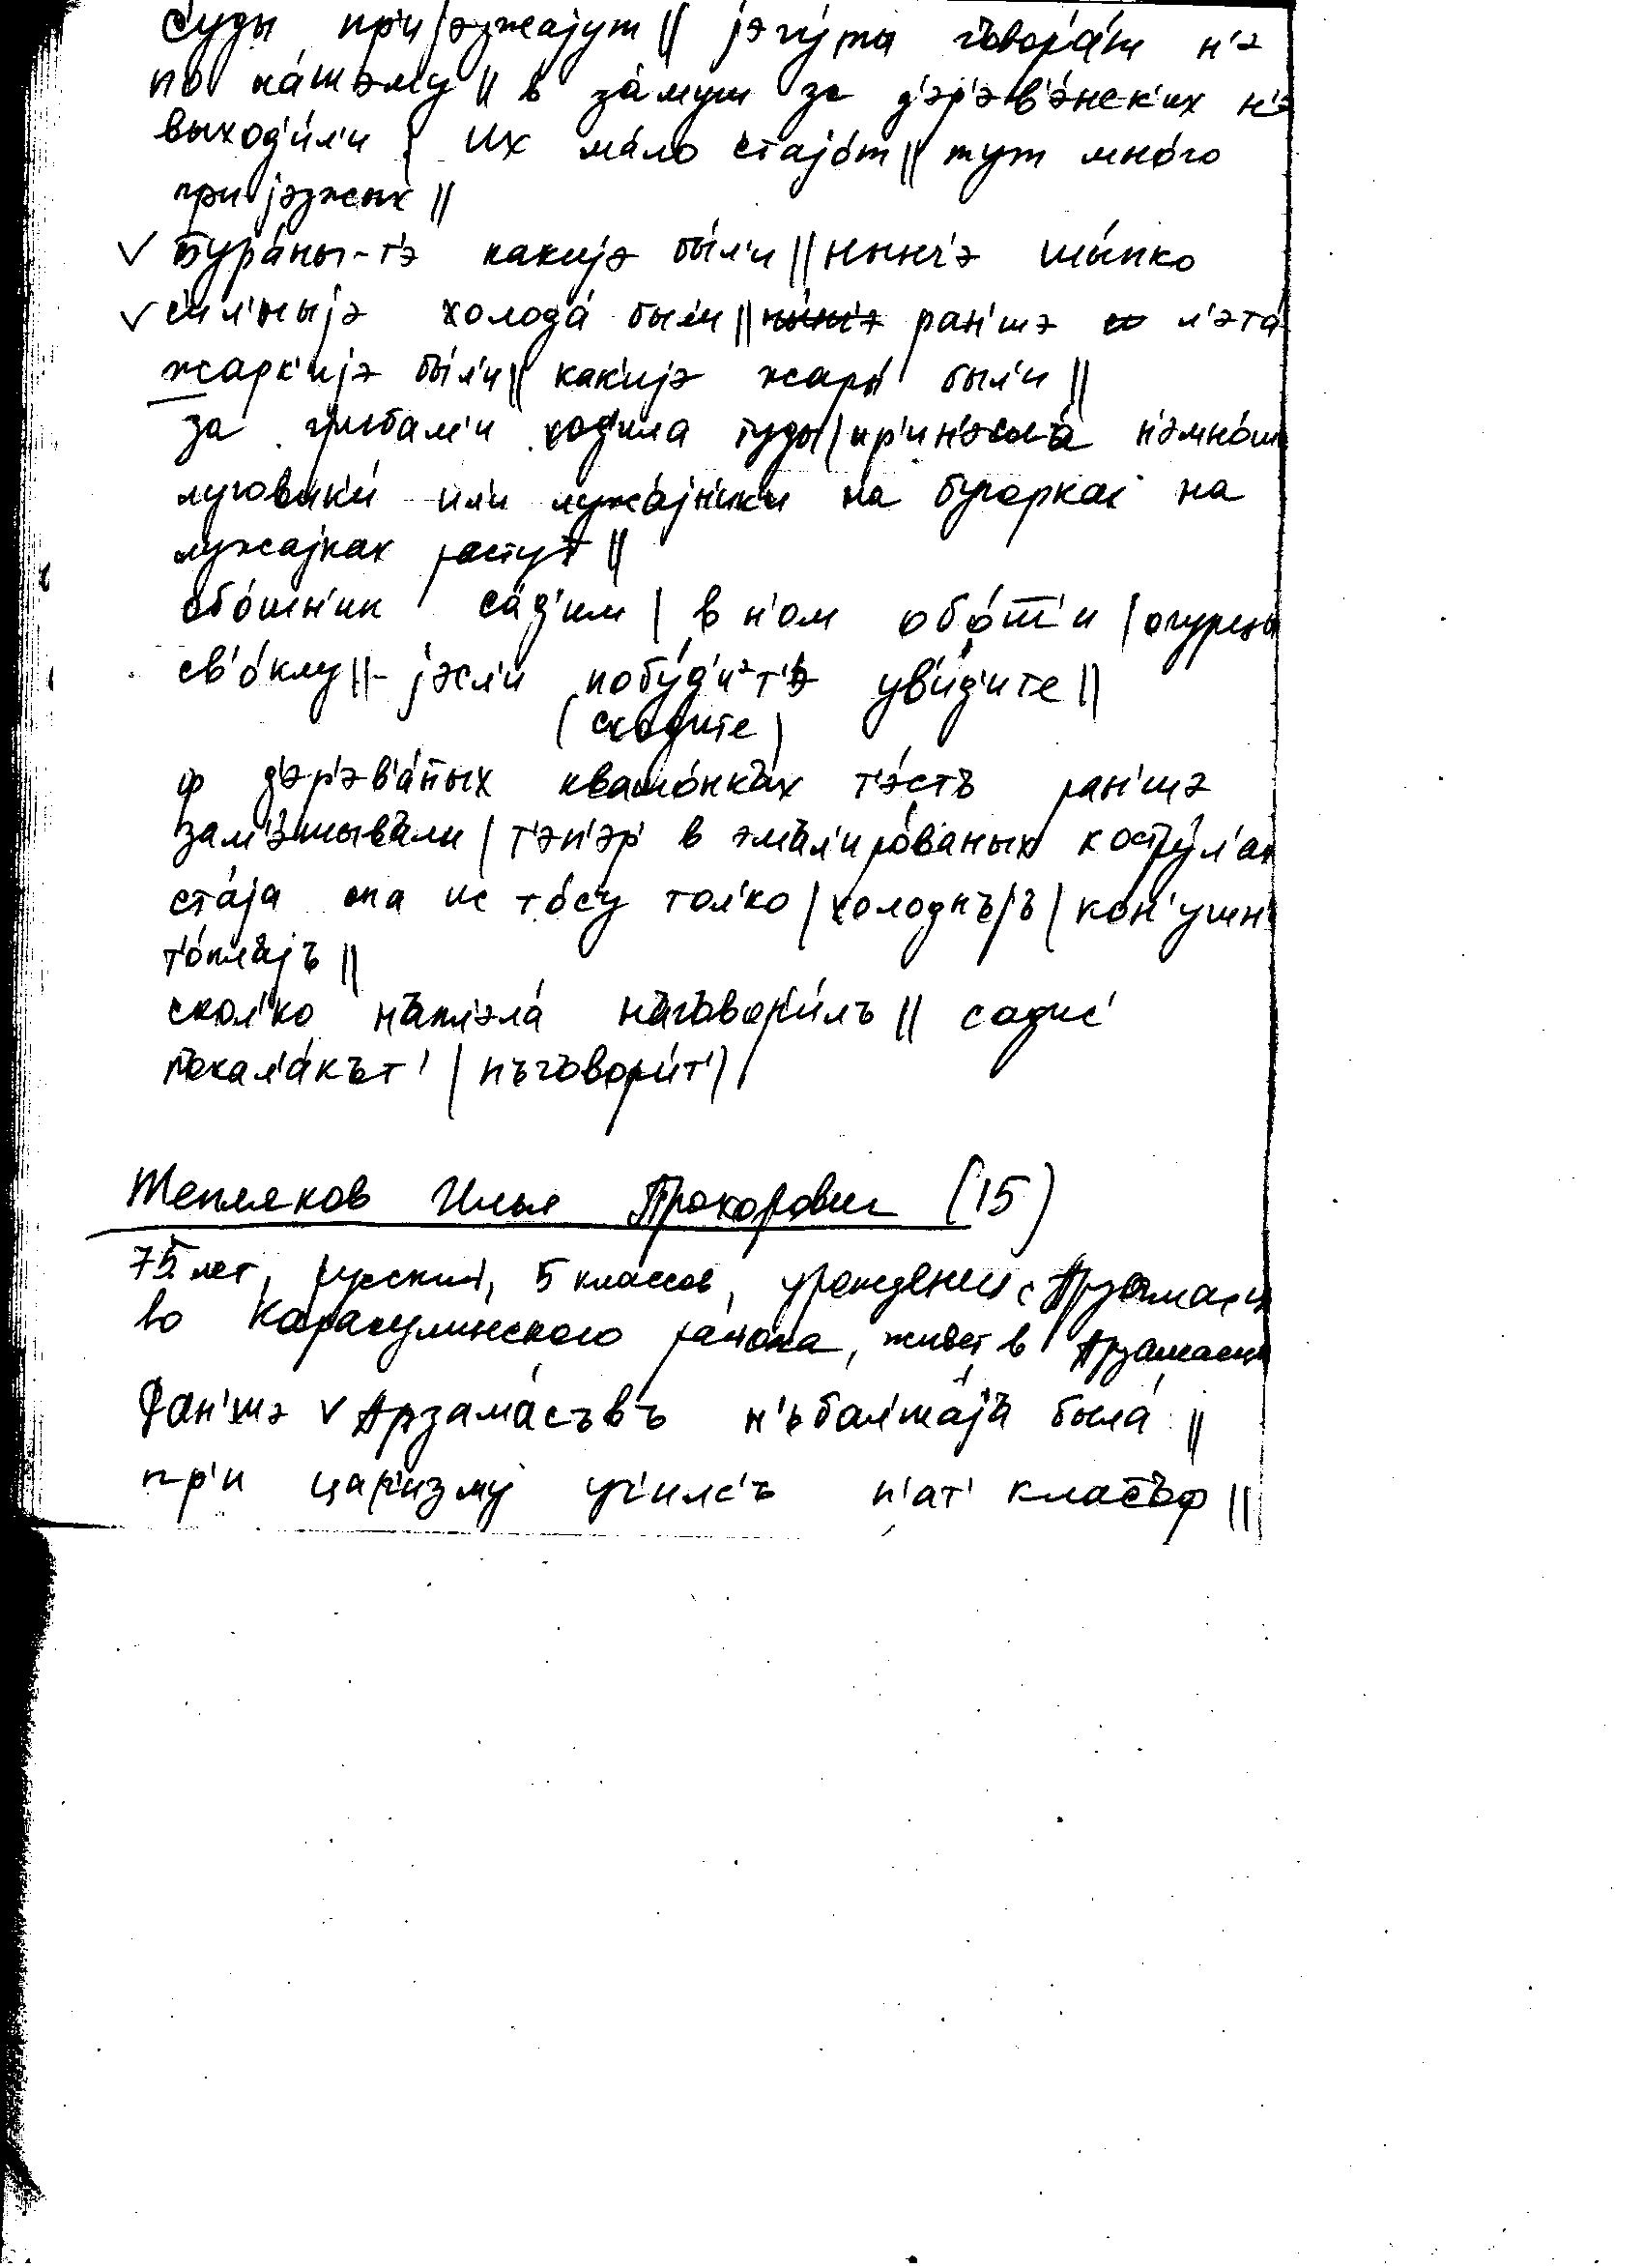 суды пр'ијэзжајут || јэгу́та гъвор'а́т н'э
по на́шэму || в за́муш за д'эр'эв'э́нск'их н'э
выход'и́л'и | их ма́ло стајо́т || тут мно́го
пријэзжых ||
√ бура́ны-т'э какијэ бы́л'и || нынч'э шы́пко
√ с'ил'ныјэ холода́ был'и || ран'шэ л'эта́
жарк'ијэ бы́л'и || как'ијэ жары́ был'и ||
за грибам'и ход'ила туды́ | пр'ин'эсла́ н'эмно́ш
луговик'и́ ил'и лужа́јн'ики на бугорках на
лужајках растут ||
обо́шн'ик са́д'им | в н'ом обо́ш'и | огурцы
св'о́клу || јэсл'и побу́д'ит'э ув'и́д'ите ||
(сходите)
ф д'эр'эв'а́ных квашо́нкъх т'э́стъ ран'шэ
зам'э́шывъли | т'эп'эр' в эмъл'иро́ваных костру́л'ах
ста́ја она ис то́су тол'ко | холоднъјъ | кон'ушн'
то́плъјъ ||
скол'ко нъпл'эла́ нъгъвор'и́лъ || садис'
покал'а́кът' | пъговор'и́т' |
Тепляков Илья Прохорович (15)
75 лет, русский, 5 классов, урожденец с. Арзамасц
во Каракулинского района, живет в Арзамасц
Ран'шэ √ Арзама́съвъ н'ъбал'ша́јъ была́ ||
пр'и цар'изму уч'илс'ъ п'ат' класъф ||